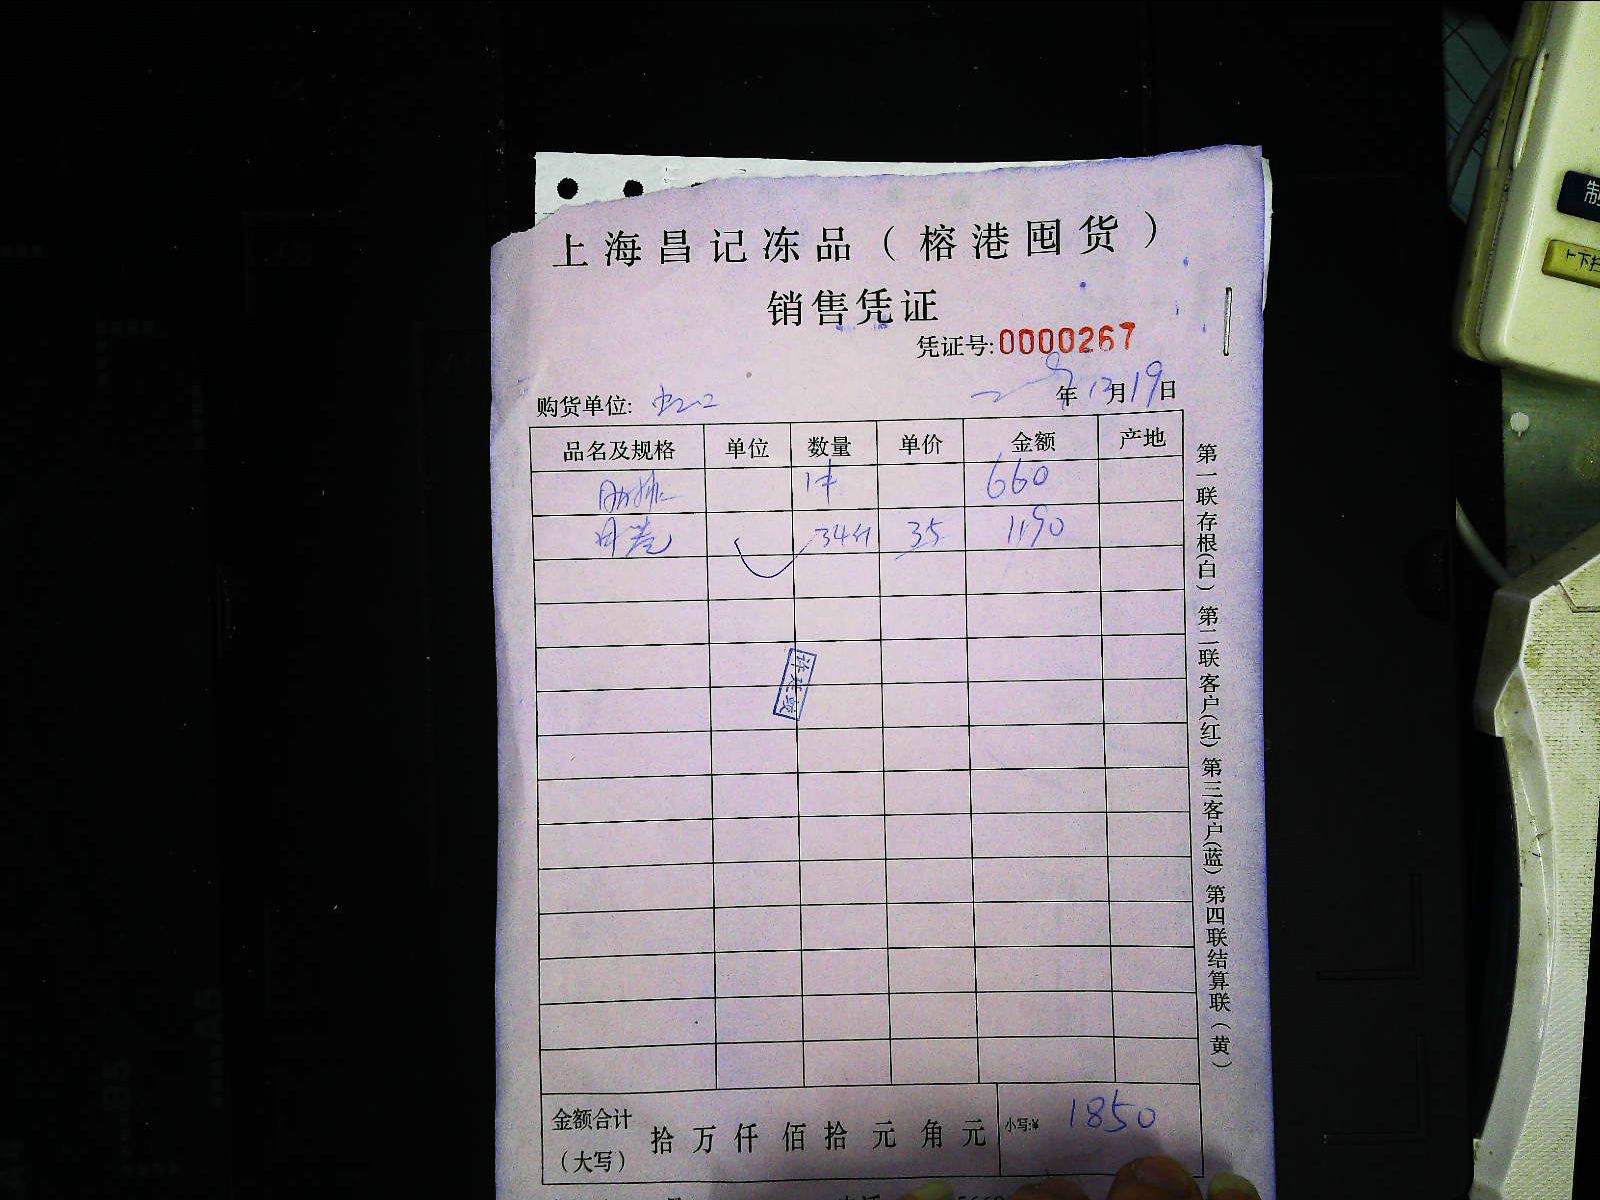 上海昌记冻品（榕港囤货）
销售凭证
凭证号:0000267
购货单位:
年12月19日
品名及规格 单位 数量 单价 金额 产地
肋排 1件 660
月卷 34斤 35 1190
金额合计（大写） 拾万仟佰拾元角元 小写:¥ 1850
第一联存根(白) 第二联客户(红) 第三客户(蓝) 第四联结算联(黄)
制
上下